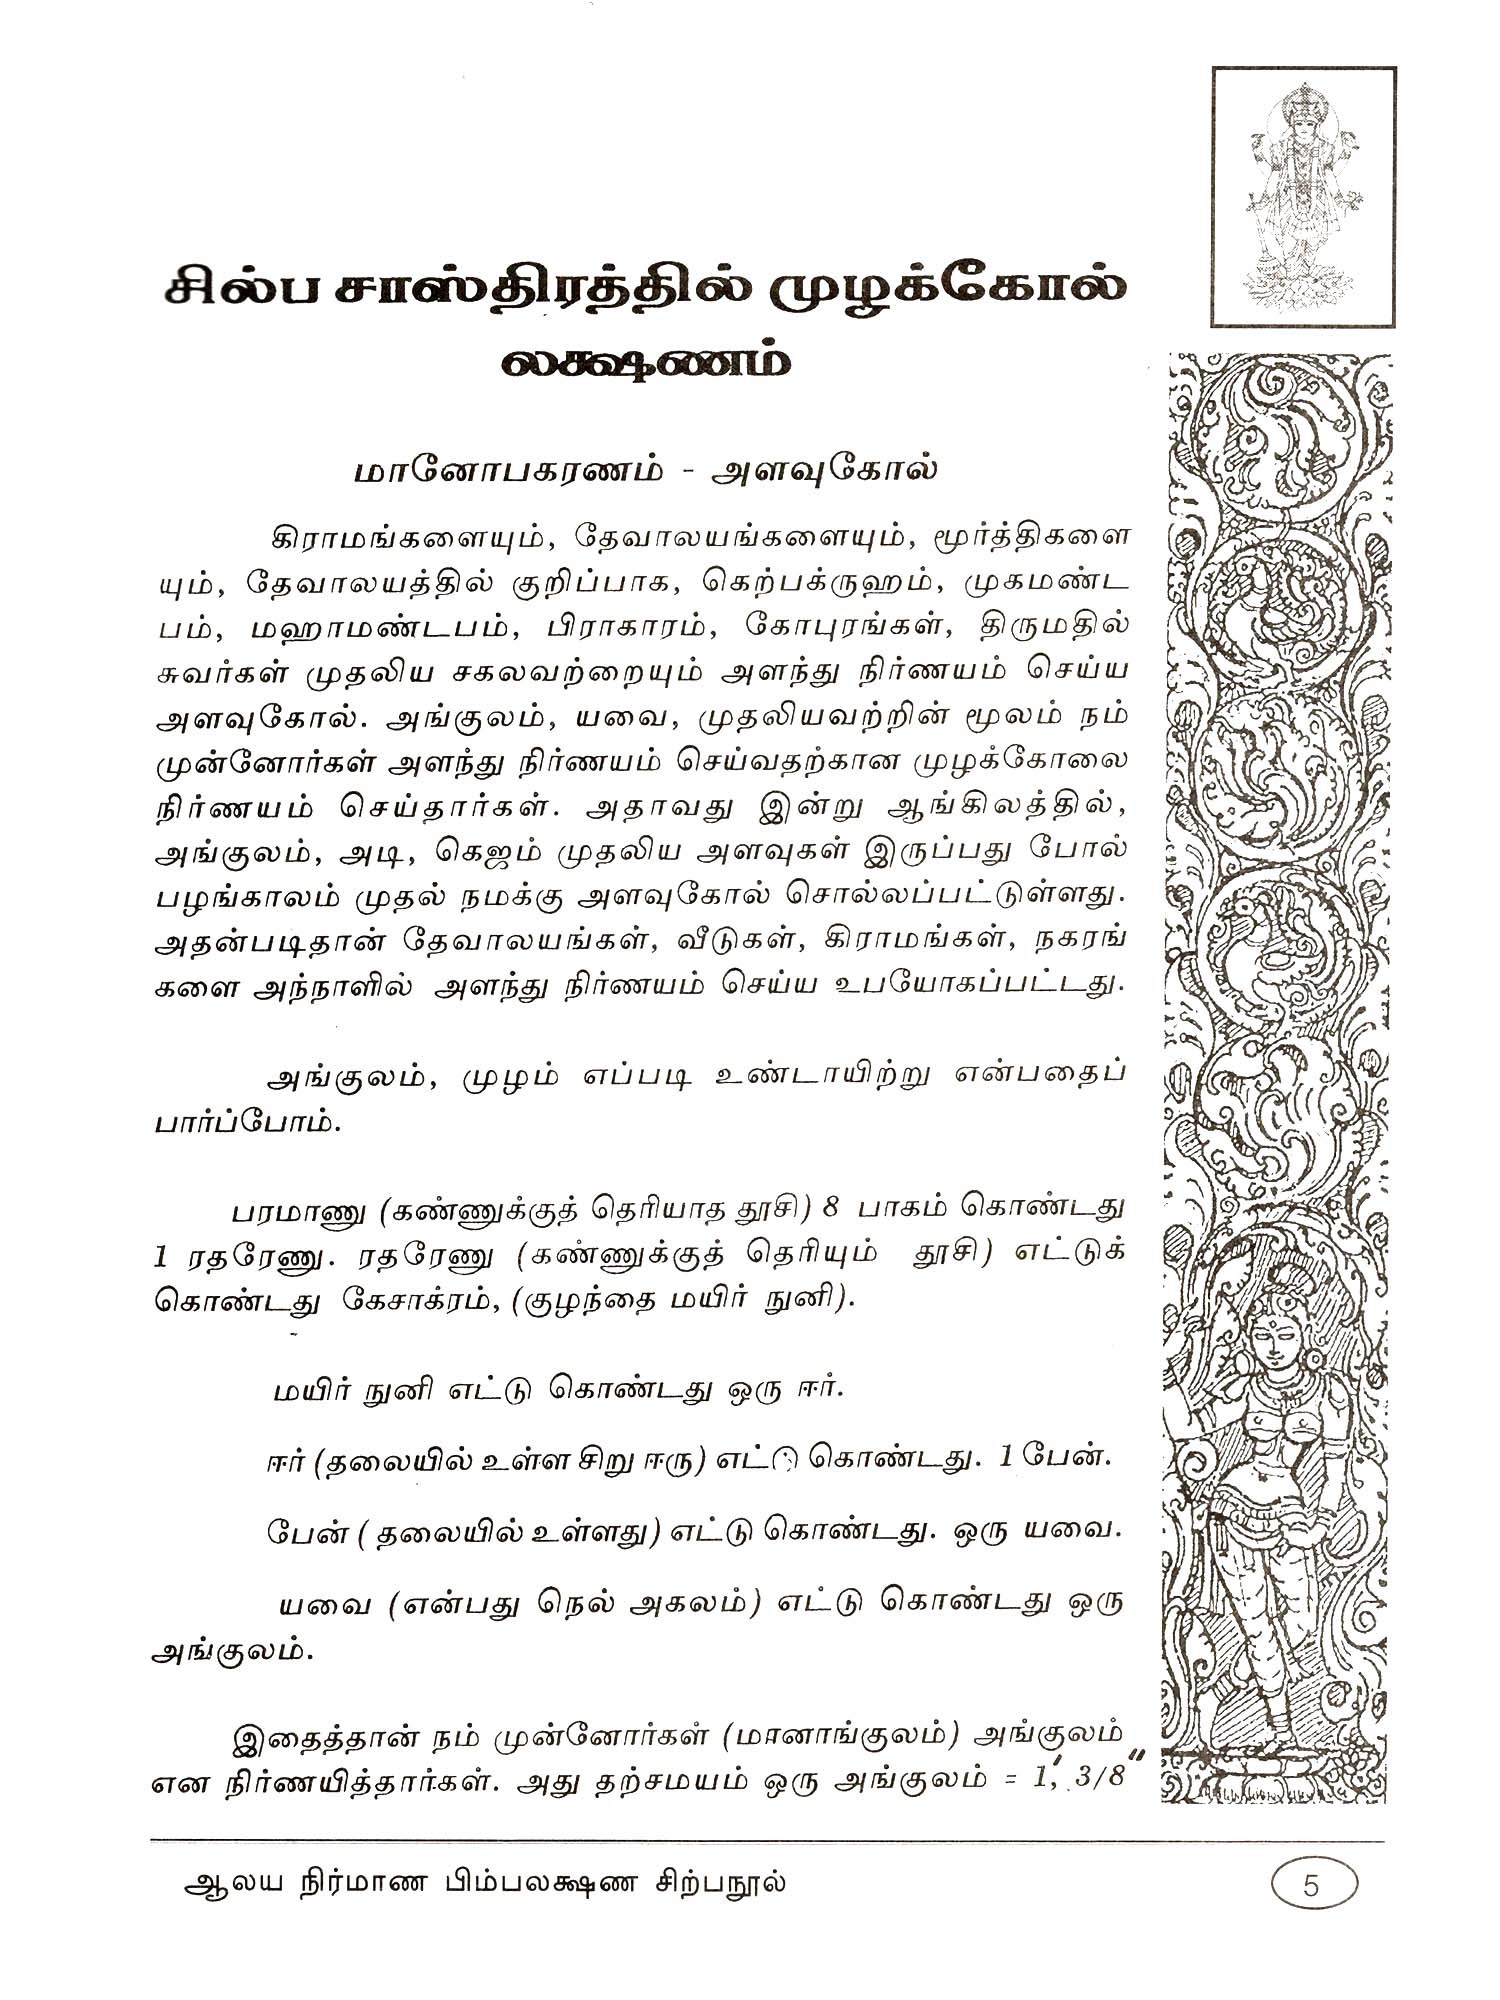 சில்ப சாஸ்திரத்தில் முழக்கோல்
லக்ஷணம்
மானோபகரணம் - அளவுகோல்
கிராமங்களையும், தேவாலயங்களையும், மூர்த்திகளை
யும், தேவாலயத்தில் குறிப்பாக, கெற்பக்ருஹம், முகமண்ட
பம், மஹாமண்டபம், பிராகாரம், கோபுரங்கள், திருமதில்
சுவர்கள் முதலிய சகலவற்றையும் அளந்து நிர்ணயம் செய்ய
அளவுகோல். அங்குலம், யவை, முதலியவற்றின் மூலம் நம்
முன்னோர்கள் அளந்து நிர்ணயம் செய்வதற்கான முழக்கோலை
நிர்ணயம் செய்தார்கள். அதாவது இன்று ஆங்கிலத்தில்,
அங்குலம், அடி, கெஜம் முதலிய அளவுகள் இருப்பது போல்
பழங்காலம் முதல் நமக்கு அளவுகோல் சொல்லப்பட்டுள்ளது.
அதன்படிதான் தேவாலயங்கள், வீடுகள், கிராமங்கள், நகரங்
களை அந்நாளில் அளந்து நிர்ணயம் செய்ய உபயோகப்பட்டது.
அங்குலம், முழம் எப்படி உண்டாயிற்று என்பதைப்
பார்ப்போம்.
பரமாணு (கண்ணுக்குத் தெரியாத தூசி) 8 பாகம் கொண்டது
1 ரதரேணு. ரதரேணு (கண்ணுக்குத் தெரியும் தூசி) எட்டுக்
கொண்டது கேசாக்ரம், (குழந்தை மயிர் நுனி).
மயிர் நுனி எட்டு கொண்டது ஒரு ஈர்.
ஈர் (தலையில் உள்ள சிறு ஈரு) எட்டு கொண்டது. 1 பேன்.
பேன் ( தலையில் உள்ளது) எட்டு கொண்டது. ஒரு யவை.
யவை (என்பது நெல் அகலம்) எட்டு கொண்டது ஒரு
அங்குலம்.
இதைத்தான் நம் முன்னோர்கள் (மானாங்குலம்) அங்குலம்
என நிர்ணயித்தார்கள். அது தற்சமயம் ஒரு அங்குலம் = 1', 3/8"
ஆலய நிர்மாண பிம்பலக்ஷண சிற்பநூல்
5